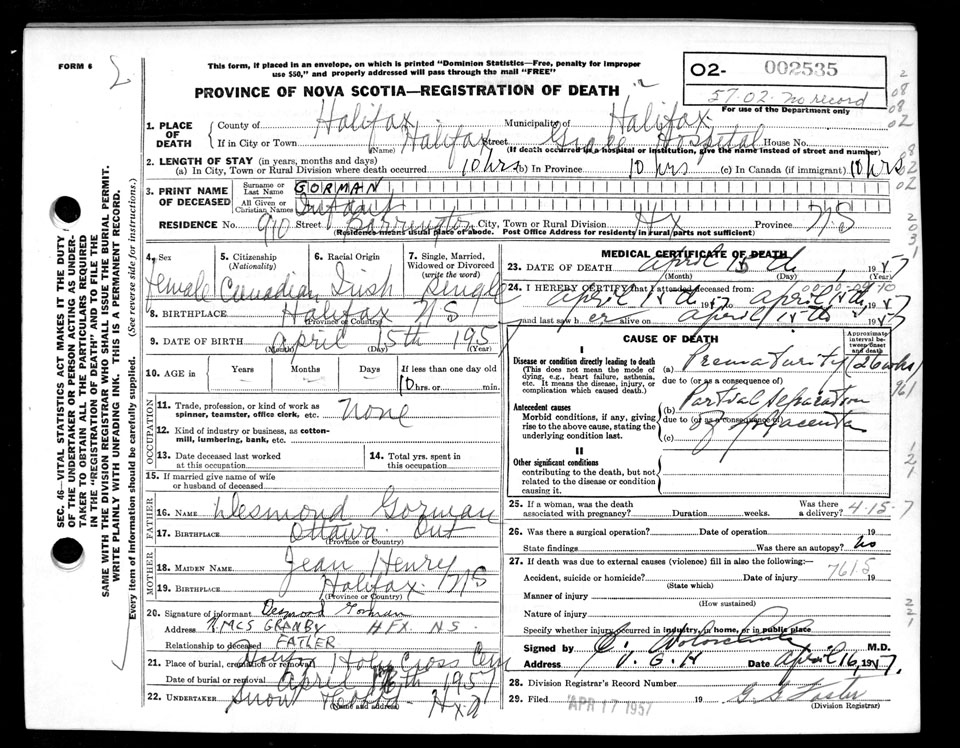 FORM 6
2
This form, if placed in an envelope, on which is printed "Dominion Statistics—Free, penalty for improper
use $50," and properly addressed will pass through the mail "FREE"
PROVINCE OF NOVA SCOTIA—REGISTRATION OF DEATH
02- 002535
57-02- no record
For use of the Department only
1. PLACE OF DEATH
County of Halifax Municipality of Halifax
If in City or Town Halifax Street Grace Hospital House No.
(Name) (If death occurred in a hospital or institution, give the name instead of street and number)
2. LENGTH OF STAY (in years, months and days)
(a) In City, Town or Rural Division where death occurred 10 hrs (b) In Province 10 hrs (c) In Canada (if immigrant) 10 hrs
3. PRINT NAME OF DECEASED
Surname or Last Name GORMAN
All Given or Christian Names Infant
RESIDENCE No. 910 Street Barrington City, Town or Rural Division Hx Province N.S
(Residence means usual place of abode. Post Office Address for residents in rural parts not sufficient)
4. Sex Female
5. Citizenship (Nationality) Canadian
6. Racial Origin Irish
7. Single, Married, Widowed or Divorced (write the word) Single
8. BIRTHPLACE Halifax NS
(Province or Country)
9. DATE OF BIRTH April 15th 1957
(Month) (Day) (Year)
10. AGE in Years Months Days If less than one day old
10 hrs. or min.
OCCUPATION
11. Trade, profession, or kind of work as spinner, teamster, office clerk, etc. None
12. Kind of industry or business, as cotton-mill, lumbering, bank, etc.
13. Date deceased last worked at this occupation
14. Total yrs. spent in this occupation
15. If married give name of wife or husband of deceased
FATHER
16. NAME Desmond Gorman
17. BIRTHPLACE Ottawa Ont
(Province or Country)
MOTHER
18. MAIDEN NAME Jean Henry
19. BIRTHPLACE Halifax NS
(Province or Country)
20. Signature of informant Desmond Gorman
Address HMCS GRANBY HFX N.S.
Relationship to deceased FATLER
21. Place of burial, cremation or removal Halifax Holy Cross Cem
Date of burial or removal April 16th 1957
22. UNDERTAKER Snow Hx
(Name and address)
MEDICAL CERTIFICATE OF DEATH
23. DATE OF DEATH April 15th, 1957
(Month) (Day) (Year)
24. I HEREBY CERTIFY that I attended deceased from:
April 15th 1957 to April 15th, 1957
and last saw her alive on April 15th 1957
CAUSE OF DEATH
Approximate interval between onset and death
I
Disease or condition directly leading to death
(This does not mean the mode of dying, e.g., heart failure, asthenia, etc. It means the disease, injury, or complication which caused death.)
(a) Prematurity 26 wks
due to (or as a consequence of)
Antecedent causes
Morbid conditions, if any, giving rise to the above cause, stating the underlying condition last.
(b) Partial separation
due to (or as a consequence of)
(c) of placenta
II
Other significant conditions
contributing to the death, but not related to the disease or condition causing it.
25. If a woman, was the death associated with pregnancy? Duration weeks. Was there a delivery? 4-15-7
26. Was there a surgical operation? Date of operation 19
State findings Was there an autopsy? No
27. If death was due to external causes (violence) fill in also the following:—
7615
Accident, suicide or homicide? Date of injury 19
(State which)
Manner of injury
(How sustained)
Nature of injury
Specify whether injury occurred in industry, in home, or in public place
Signed by C. M.D.
Address V.G.H Date April 16, 1957.
28. Division Registrar's Record Number
29. Filed APR 17 1957 19 G. G. Foster
(Division Registrar)
SEC. 46—VITAL STATISTICS ACT MAKES IT THE DUTY
OF THE UNDERTAKER OR PERSON ACTING AS UNDER-
TAKER TO OBTAIN ALL THE PARTICULARS REQUIRED
IN THE "REGISTRATION OF DEATH" AND TO FILE THE
SAME WITH THE DIVISION REGISTRAR WHO SHALL ISSUE THE BURIAL PERMIT.
WRITE PLAINLY WITH UNFADING INK. THIS IS A PERMANENT RECORD.
Every item of information should be carefully supplied. (See reverse side for instructions.)